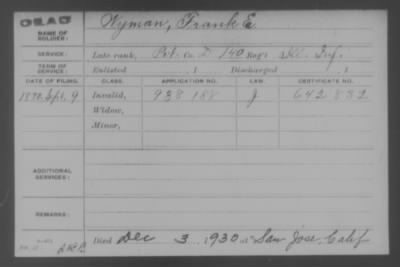 DEAD
NAME OF SOLDIER: Wyman, Frank E.
SERVICE: Late rank, Pvt. Co. D, 140 Reg't Ill. Inf.
TERM OF SERVICE: Enlisted , 1 Discharged , 1
DATE OF FILING. CLASS. APPLICATION NO. LAW. CERTIFICATE NO.
1890, Sept. 9 Invalid, 938 188 J 642 832
Widow,
Minor,
ADDITIONAL SERVICES:
REMARKS:
Died Dec 3 1930 at San Jose, Calif